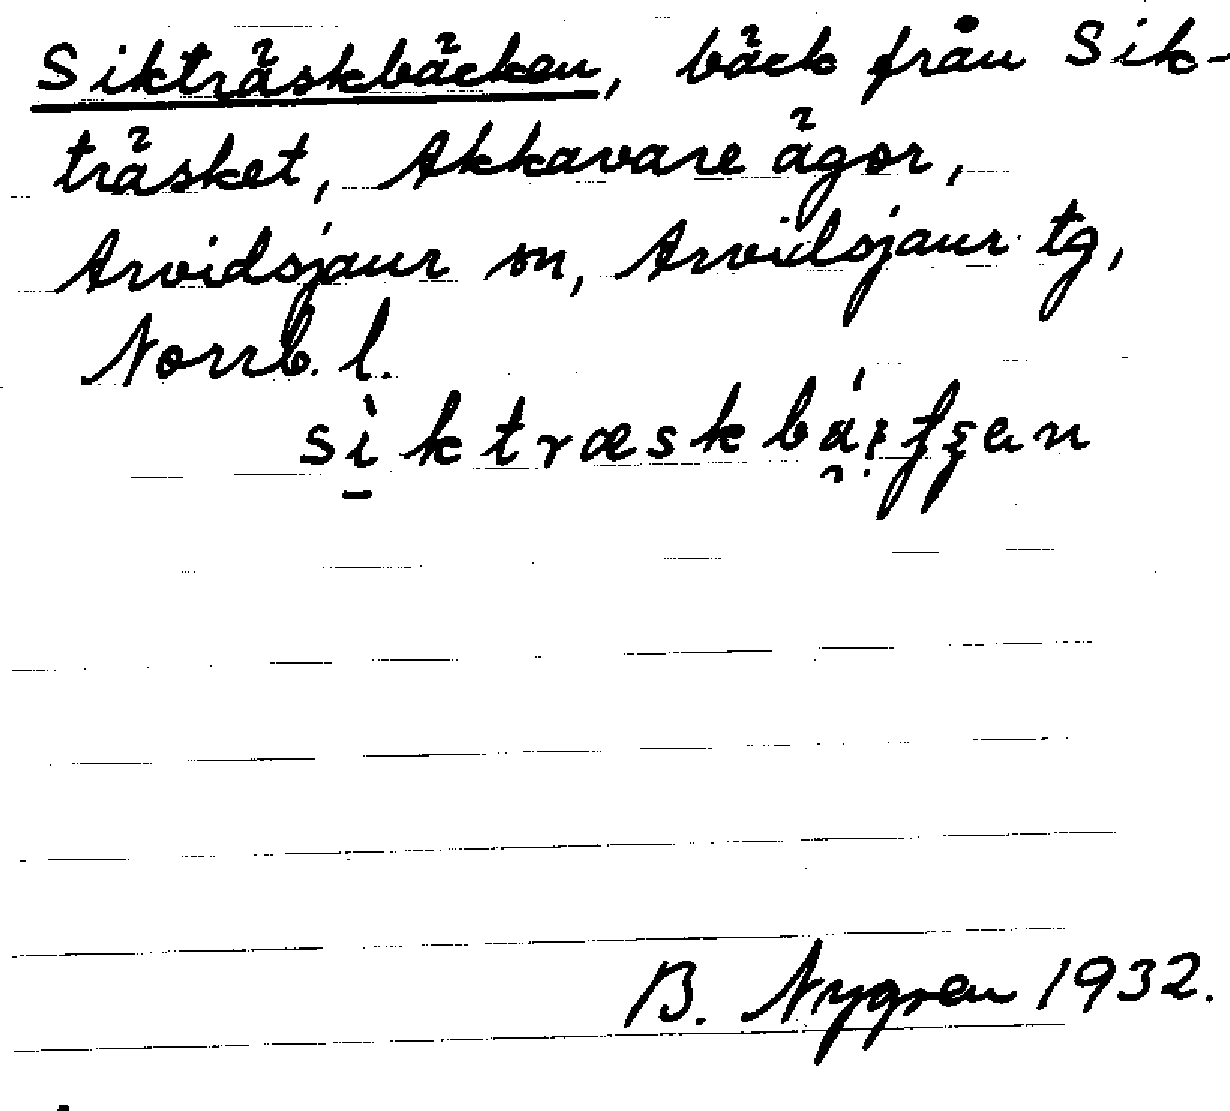 Sikträskbäcken, bäck från Sik-
träsket, Akkavare ägor,
Arvidsjaur sn, Arvidsjaur tg,
Norrb. l.
B. Nygren 1932.